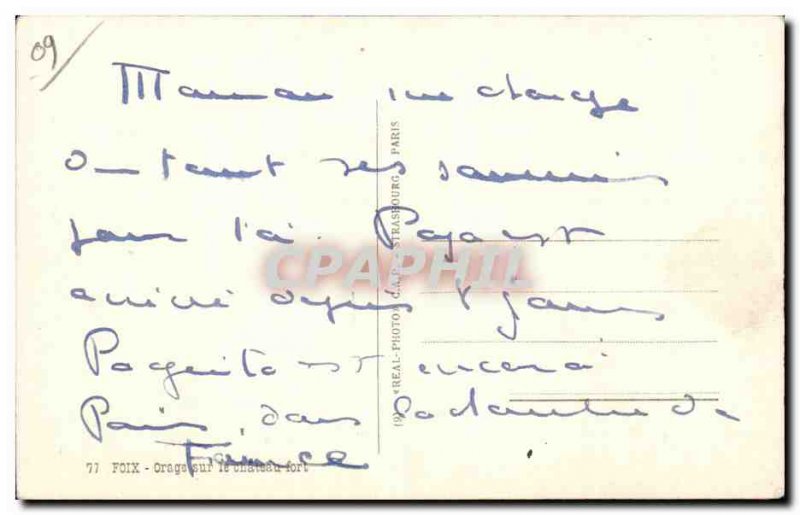 09
Maman me charge
tant ses
pour toi. Papa est
arrivé depuis 8 jours
Paquita est encore à
Paris, dans la de
France
77 FOIX - Orage sur le château fort
"REAL-PHOTO" C.A.P. STRASBOURG PARIS
CPAPHIL